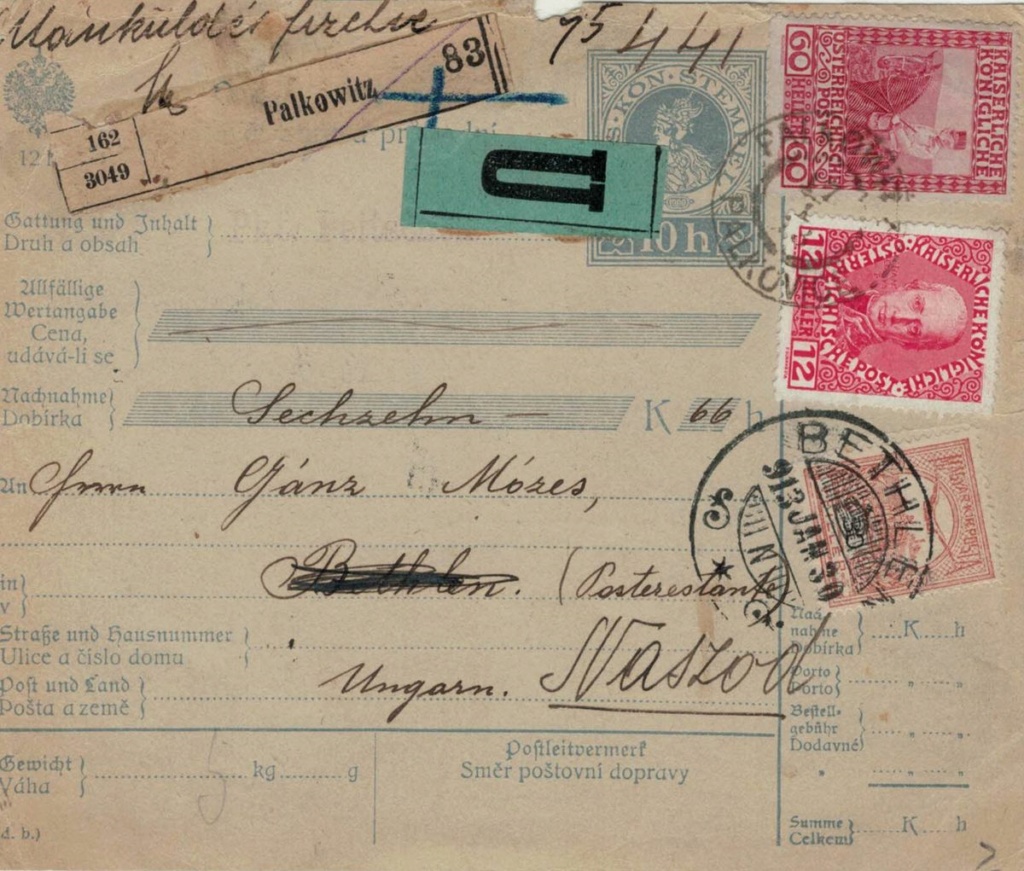 75 441
83
Palkowitz
162
3049
U
K. K. ÖSTERR. KAISERLICHE KÖNIGLICHE
60 HELLER 60
KAISERLICHE KÖNIGLICHE
ÖSTERREICHISCHE POST
12 HELLER 12
10 h
Gattung und Inhalt
Druh a obsah
Allfällige
Wertangabe
Cena,
udává-li se
Nachnahme
Dobírka
Sechzehn –
K 66 h
BETHLEN
913 JAN 30
An Herrn Gánz Mózes,
in
v
Bethlen. (Posterestante)
Straße und Hausnummer
Ulice a číslo domu
Naszod
Post und Land
Pošta a země
Ungarn.
Nachnahme
Dobírka
K h
Porto
Porto
Bestellgebühr
Dodavné
Gewicht
Váha
kg g
Postleitvermerk
Směr poštovní dopravy
Summe
Celkem
K h
d. b.)